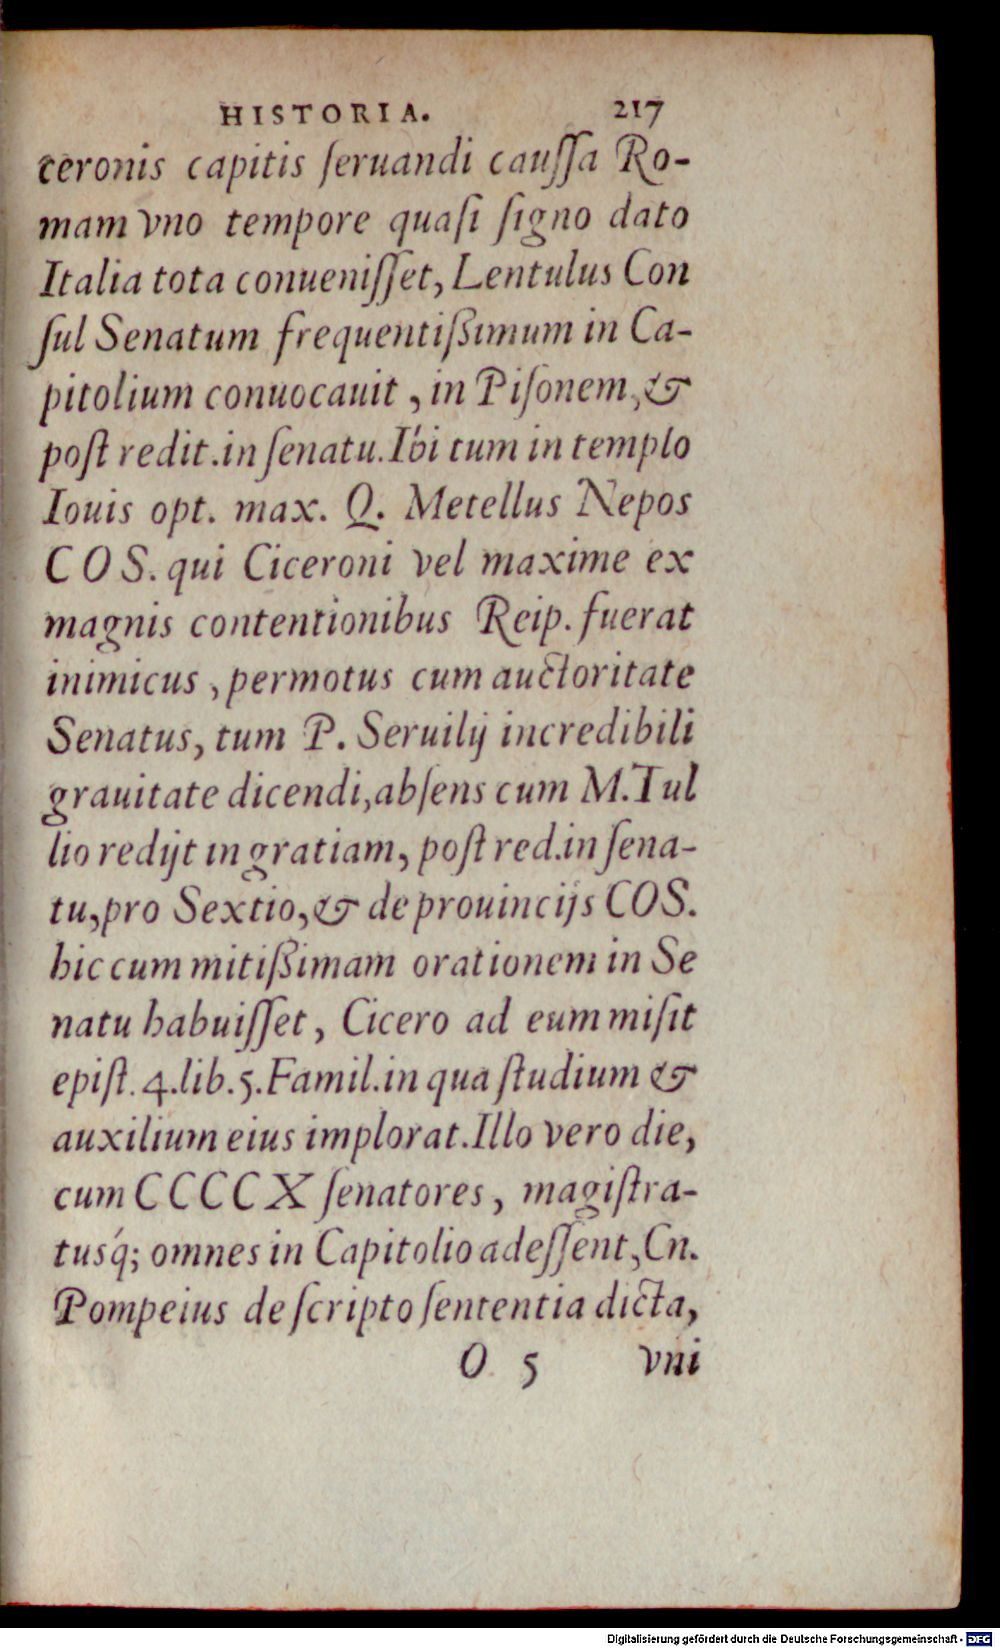 HISTORIA. 217
ceronis capitis ſeruandi cauſſa Ro-
mam vno tempore quaſi ſigno dato
Italia tota conueniſſet, Lentulus Con
ſul Senatum frequentißimum in Ca-
pitolium conuocauit, in Piſonem, &
poſt redit. in ſenatu. Ibi tum in templo
Iouis opt. max. Q. Metellus Nepos
COS. qui Ciceroni vel maxime ex
magnis contentionibus Reip. fuerat
inimicus, permotus cum auctoritate
Senatus, tum P. Seruilij incredibili
grauitate dicendi, abſens cum M. Tul
lio redijt in gratiam, poſt red. in ſena-
tu, pro Sextio, & de prouincijs COS.
hic cum mitißimam orationem in Se
natu habuiſſet, Cicero ad eum miſit
epiſt. 4. lib. 5. Famil. in qua ſtudium &
auxilium eius implorat. Illo vero die,
cum CCCCX ſenatores, magiſtra-
tusq́; omnes in Capitolio adeſſent, Cn.
Pompeius de ſcripto ſententia dicta,
O 5 vni
Digitalisierung gefördert durch die Deutsche Forschungsgemeinschaft - DFG